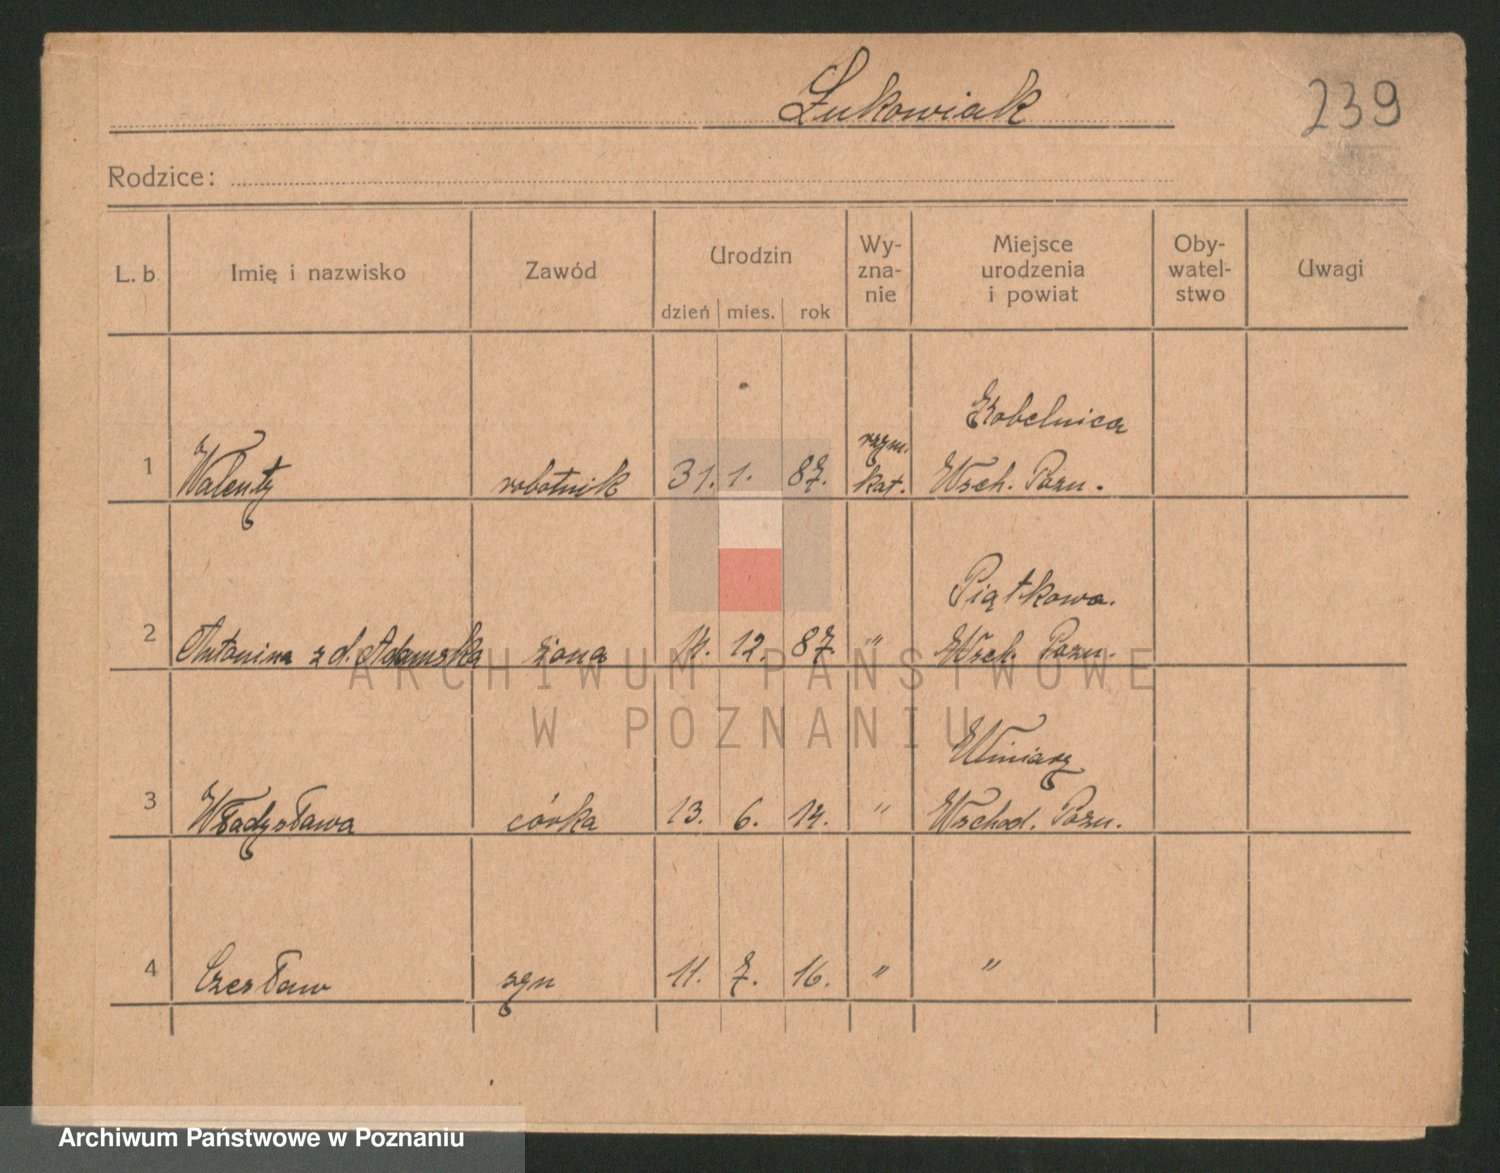 Łukowiak
239
Rodzice:
L. b.
Imię i nazwisko
Zawód
Urodzin
dzień mies. rok
Wy-
zna-
nie
Miejsce
urodzenia
i powiat
Oby-
watel-
stwo
Uwagi
Kobelnica
1 Walenty robotnik 31. 1. 87. rzym. kat. Wsch. Pozn.
Piątkowo.
2 Antonina z d. Adamska żona 14. 12. 87. " Wsch. Pozn.
ARCHIWUM PAŃSTWOWE
W POZNANIU
Winiary
3 Władysława córka 13. 6. 14. " Wschod. Pozn.
4 Czesław syn 11. 7. 16. " "
Archiwum Państwowe w Poznaniu